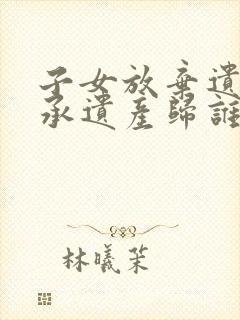 子女放棄遺
承遺產歸誰
林曦茉